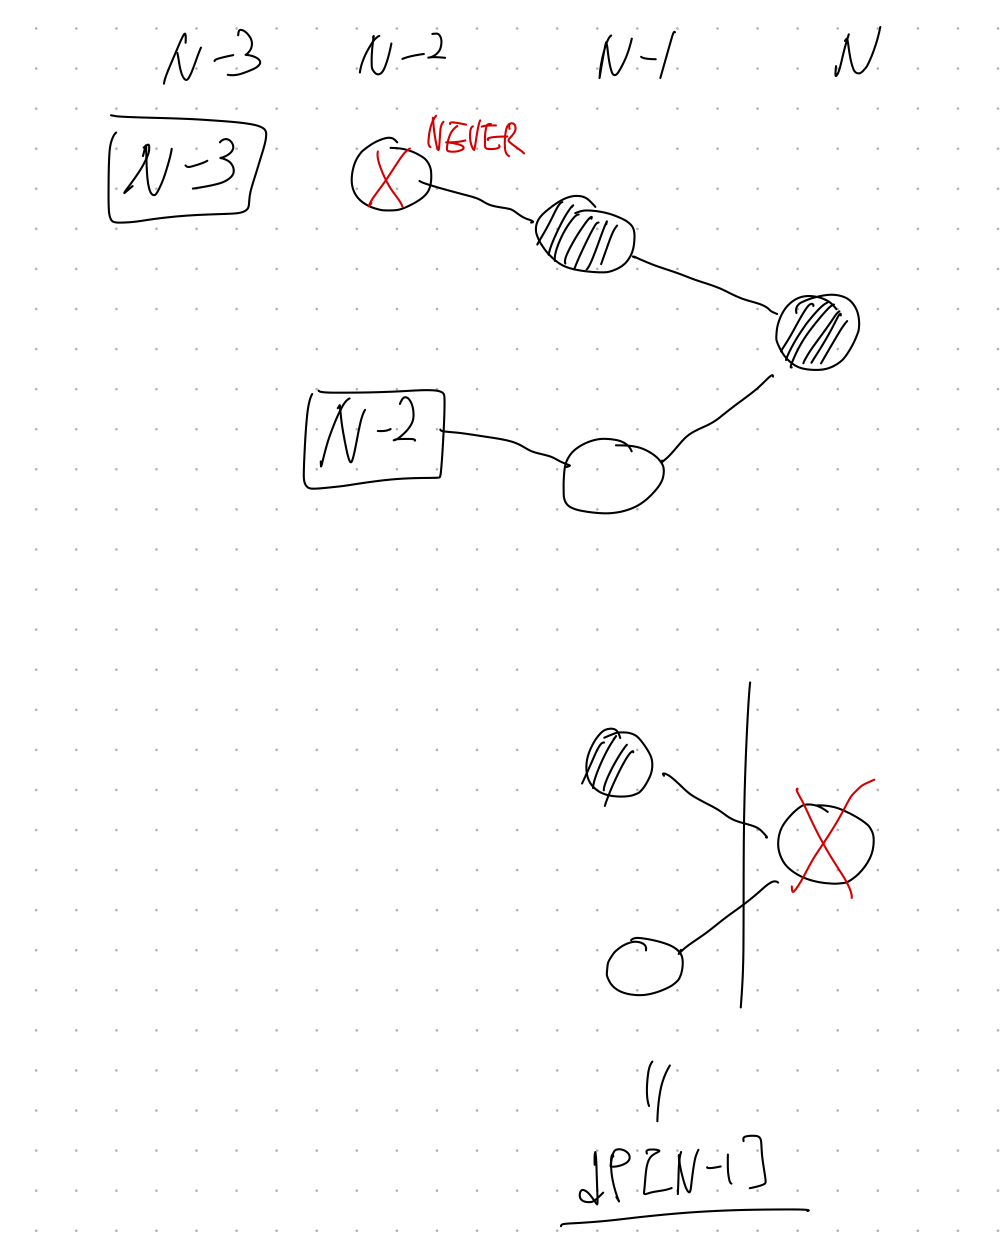 N-3 N-2 N-1 N
NEVER
N-3
N-2
dP[N-1]